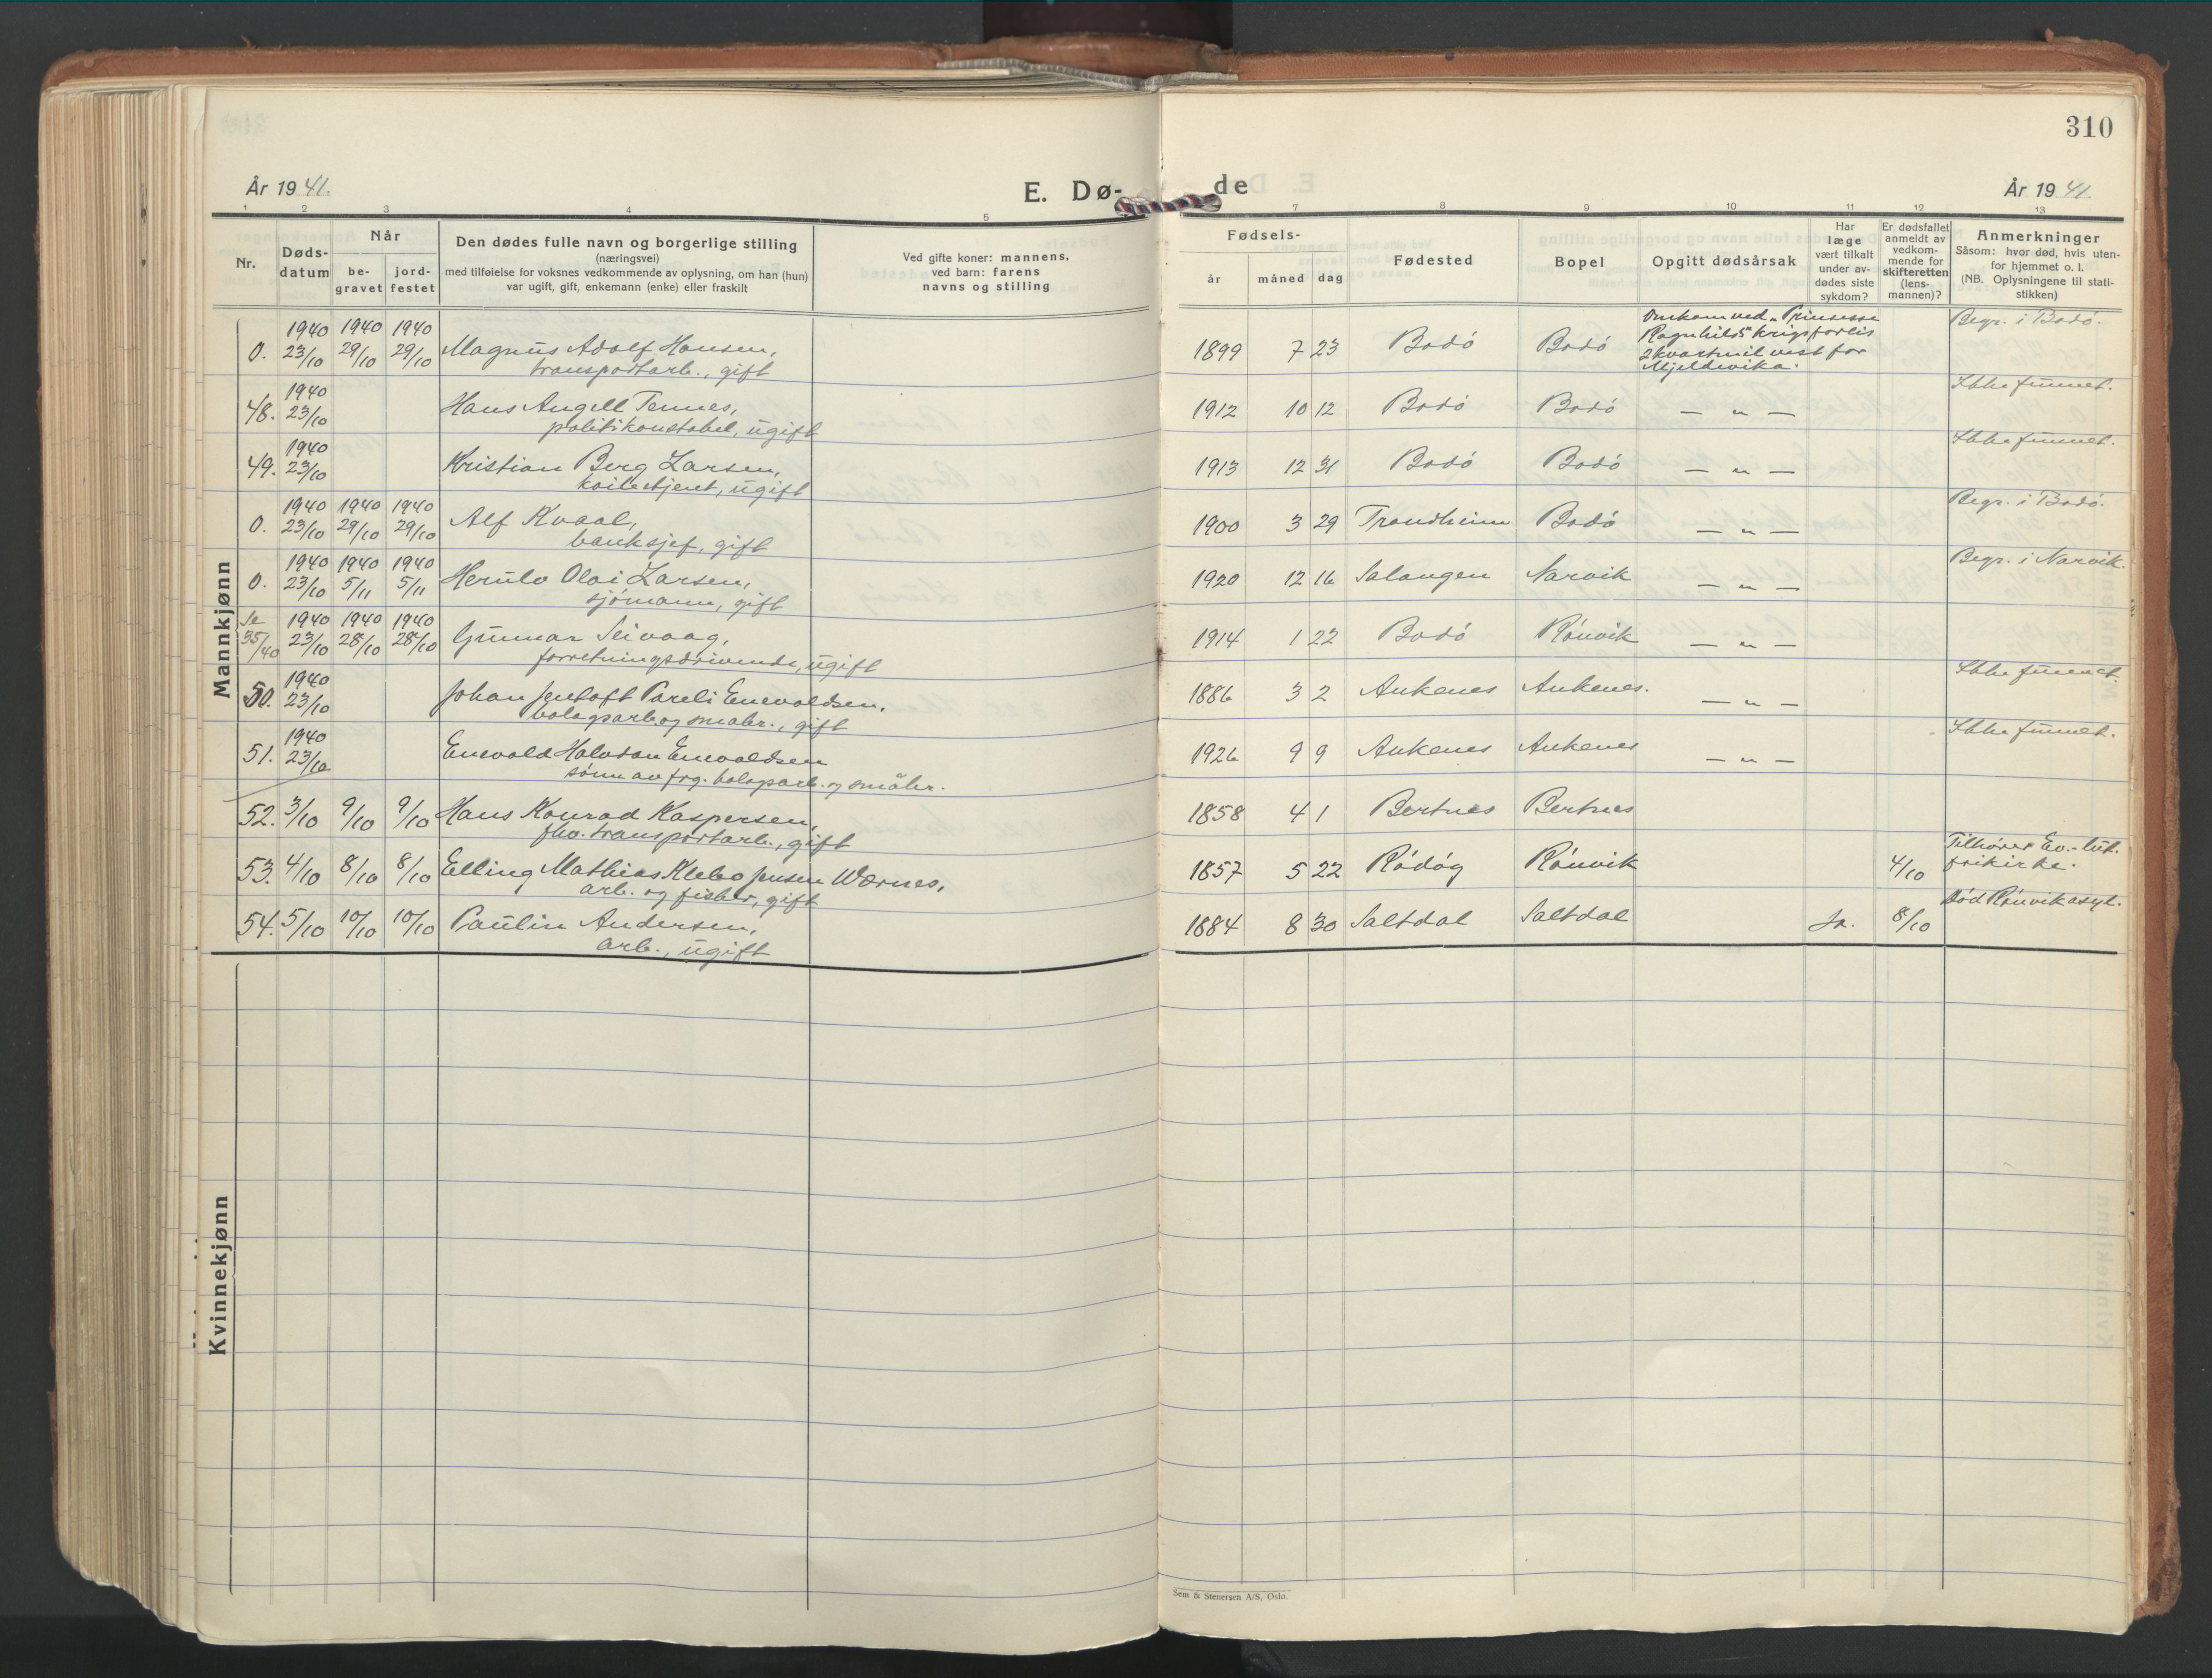 310
År 1941.
E. Dø-
de
År 1941.
1 2 3 4 5 7 8 9 10 11 12 13
Nr.
Døds-
datum
Når
be-
gravet
jord-
festet
Den dødes fulle navn og borgerlige stilling
(næringsvei)
med tilføielse for voksnes vedkommende av oplysning, om han (hun)
var ugift, gift, enkemann (enke) eller fraskilt
Ved gifte koner: mannens,
ved barn: farens
navns og stilling
Fødsels-
år måned dag
Fødested
Bopel
Opgitt dødsårsak
Har
læge
vært tilkalt
under av-
dødes siste
sykdom?
Er dødsfallet
anmeldt av
vedkom-
mende for
skifteretten
(lens-
mannen)?
Anmerkninger
Såsom: hvor død, hvis uten-
for hjemmet o. l.
(NB. Oplysningene til stati-
stikken)
Mannkjønn
1940 1940 1940
0. 23/10 29/10 29/10 Magnus Adolf Hansen,
transportarb., gift
1899 7 23 Bodó Bodó
Omkom ved "Prinsesse
Ragnhilds" krigsforlis
2 kvartmil vest for
Mjeldevika.
Begr. i Bodó.
1940
48. 23/10 Hans Angell Tennes,
politikonstabel, ugift
1912 10 12 Bodó Bodó — " — Ikke funnet.
1940
49. 23/10 Kristian Berg Larsen,
ugift
1913 12 31 Bodó Bodó — " — Ikke funnet.
1940 1940 1940
0. 23/10 29/10 29/10 Alf Kvaal,
banksjef, gift
1900 3 29 Trondheim Bodó — " — Begr. i Bodó.
1940 1940 1940
0. 23/10 5/11 5/11 Herulv Olai Larsen,
sjómann, gift
1920 12 16 Salangen Narvik — " — Begr. i Narvik.
Se 1940 1940 1940
35/40 23/10 28/10 28/10 Gunnar Seivaag,
forretningsdrivende, ugift
1914 1 22 Bodó Rónvik — " —
1940
50. 23/10 Johan Jentoft Pareli Enevoldsen,
bolagsarb. og småbr., gift
1886 3 2 Ankenes Ankenes. — " — Ikke funnet.
1940
51. 23/10 Enevold Halvdan Enevoldsen
sónn av frg. bolagsarb. og småbr.
1926 9 9 Ankenes Ankenes — " — Ikke funnet.
52. 3/10 9/10 9/10 Hans Konrad Kaspersen,
fhv. transportarb., gift
1858 4 1 Bertnes Bertnes
53. 4/10 8/10 8/10 Elling Mathias Klebo Jensen Wærnes,
arb. og fisker, gift
1857 5 22 Ródóy Rónvik 4/10
Tilhórer Ev.-lut.
frikirke.
54. 5/10 10/10 10/10 Paulin Andersen,
arb., ugift
1884 8 30 Saltdal Saltdal Ja. 8/10 Dód Rónvik asyl.
Kvinnekjønn
Sem & Stenersen A/S, Oslo.